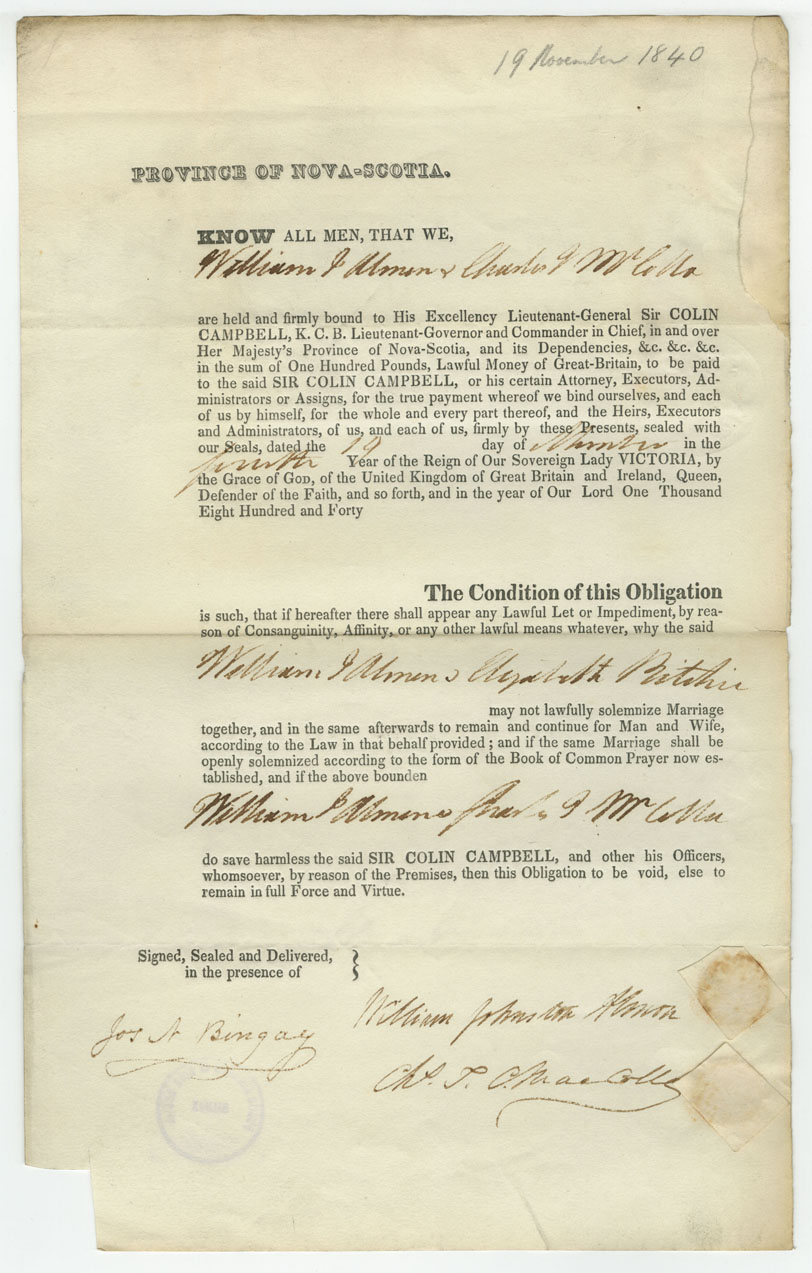 19 November 1840
PROVINCE OF NOVA-SCOTIA.
KNOW ALL MEN, THAT WE,
William J Almon & Charles T McColla
are held and firmly bound to His Excellency Lieutenant-General Sir COLIN
CAMPBELL, K. C. B. Lieutenant-Governor and Commander in Chief, in and over
Her Majesty's Province of Nova-Scotia, and its Dependencies, &c. &c. &c.
in the sum of One Hundred Pounds, Lawful Money of Great-Britain, to be paid
to the said SIR COLIN CAMPBELL, or his certain Attorney, Executors, Ad-
ministrators or Assigns, for the true payment whereof we bind ourselves, and each
of us by himself, for the whole and every part thereof, and the Heirs, Executors
and Administrators, of us, and each of us, firmly by these Presents, sealed with
our Seals, dated the 19 day of November in the
fourth Year of the Reign of Our Sovereign Lady VICTORIA, by
the Grace of GOD, of the United Kingdom of Great Britain and Ireland, Queen,
Defender of the Faith, and so forth, and in the year of Our Lord One Thousand
Eight Hundred and Forty
The Condition of this Obligation
is such, that if hereafter there shall appear any Lawful Let or Impediment, by rea-
son of Consanguinity, Affinity, or any other lawful means whatever, why the said
William J Almon & Elizabeth Ritchie
may not lawfully solemnize Marriage
together, and in the same afterwards to remain and continue for Man and Wife,
according to the Law in that behalf provided; and if the same Marriage shall be
openly solemnized according to the form of the Book of Common Prayer now es-
tablished, and if the above bounden
William J Almon & Charles T McColla
do save harmless the said SIR COLIN CAMPBELL, and other his Officers,
whomsoever, by reason of the Premises, then this Obligation to be void, else to
remain in full Force and Virtue.
Signed, Sealed and Delivered,
in the presence of
William Johnston Almon
Jos N Bingay
Chs. T. C. MacColla